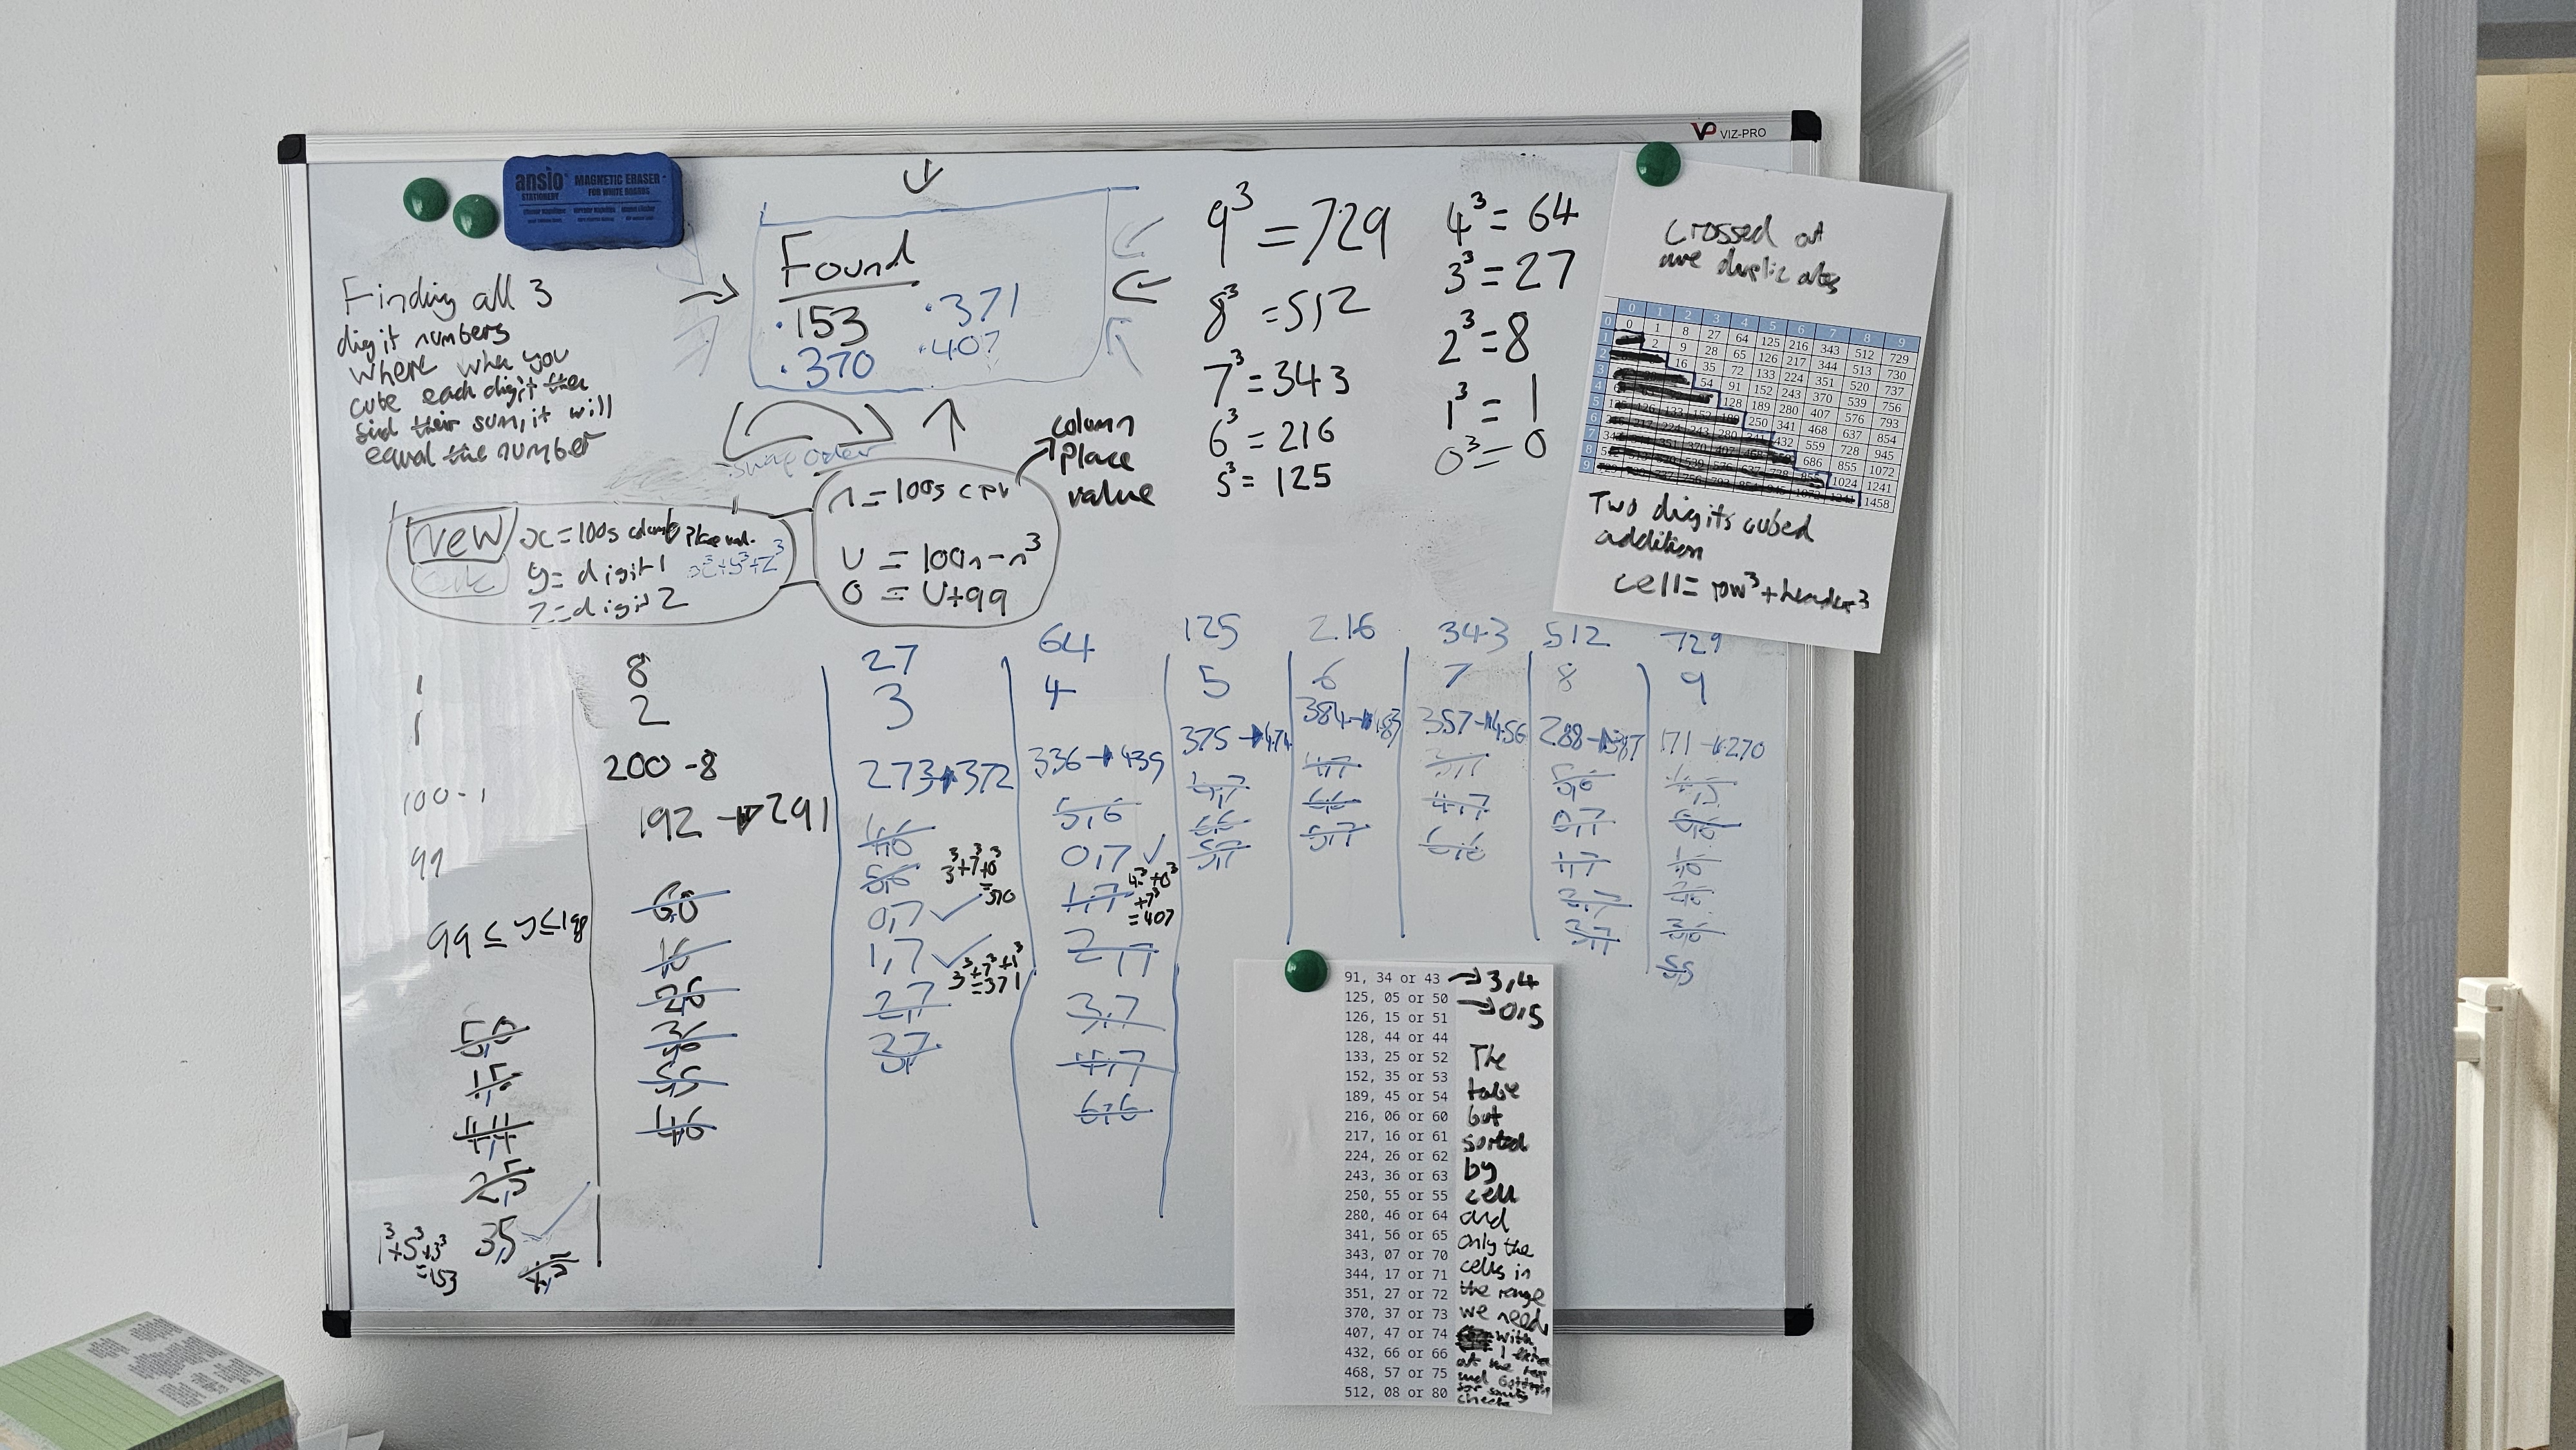 VP VIZ-PRO
ansio
STATIONERY
MAGNETIC ERASER
FOR WHITE BOARDS
Finding all 3
digit numbers
where when you
cube each digit then
find their sum, it will
equal the number
Found
·153
·370
·371
·407
swap order
9³ = 729
8³ = 512
7³ = 343
6³ = 216
5³ = 125
4³ = 64
3³ = 27
2³ = 8
1³ = 1
0³ = 0
Crossed out
are duplicates
0 1 2 3 4 5 6 7 8 9
0 0 1 8 27 64 125 216 343 512 729
1 2 9 28 65 126 217 344 513 730
2 16 35 72 133 224 351 520 737
3 54 91 152 243 370 539 756
4 128 189 280 407 576 793
5 250 341 468 637 854
6 432 559 728 945
7 686 855 1072
8 1024 1241
9 1458
Two digits cubed
addition
cell = row³ + header³
new
x = 100s column place val.
y = digit 1
x³+y³+z³
z = digit 2
n = 100s cpv
column
place
value
U = 100n - n³
O = U+99
1
1
100-1
99
99 ≤ y ≤ 198
5,0
1,5
4,4
2,5
3,5
1³+5³+3³
=153
8
2
200-8
192 → 291
6,0
1,6
2,6
3,6
5,5
4,6
27
3
273 → 372
4,6
5,6
0,7
3³+7³+0³
=370
1,7
3³+7³+1³
=371
2,7
3,7
64
4
336 → 435
5,6
0,7
4³+0³
+7³
=407
1,7
2,7
3,7
4,7
6,6
125
5
375 → 474
4,7
6,6
5,7
216
6
384 → 483
4,7
6,6
5,7
343
7
357 → 456
3,7
4,7
6,6
512
8
288 → 387
5,6
0,7
1,7
2,7
3,7
729
9
171 → 270
4,5
0,6
1,6
2,6
3,6
5,5
91, 34 or 43 → 3,4
125, 05 or 50 → 0,5
126, 15 or 51
128, 44 or 44
133, 25 or 52
152, 35 or 53
189, 45 or 54
216, 06 or 60
217, 16 or 61
224, 26 or 62
243, 36 or 63
250, 55 or 55
280, 46 or 64
341, 56 or 65
343, 07 or 70
344, 17 or 71
351, 27 or 72
370, 37 or 73
407, 47 or 74
432, 66 or 66
468, 57 or 75
512, 08 or 80
The
table
but
sorted
by
cell
and
only the
cells in
the range
we need
with
1 extra
at the top
and bottom
for sanity
checks